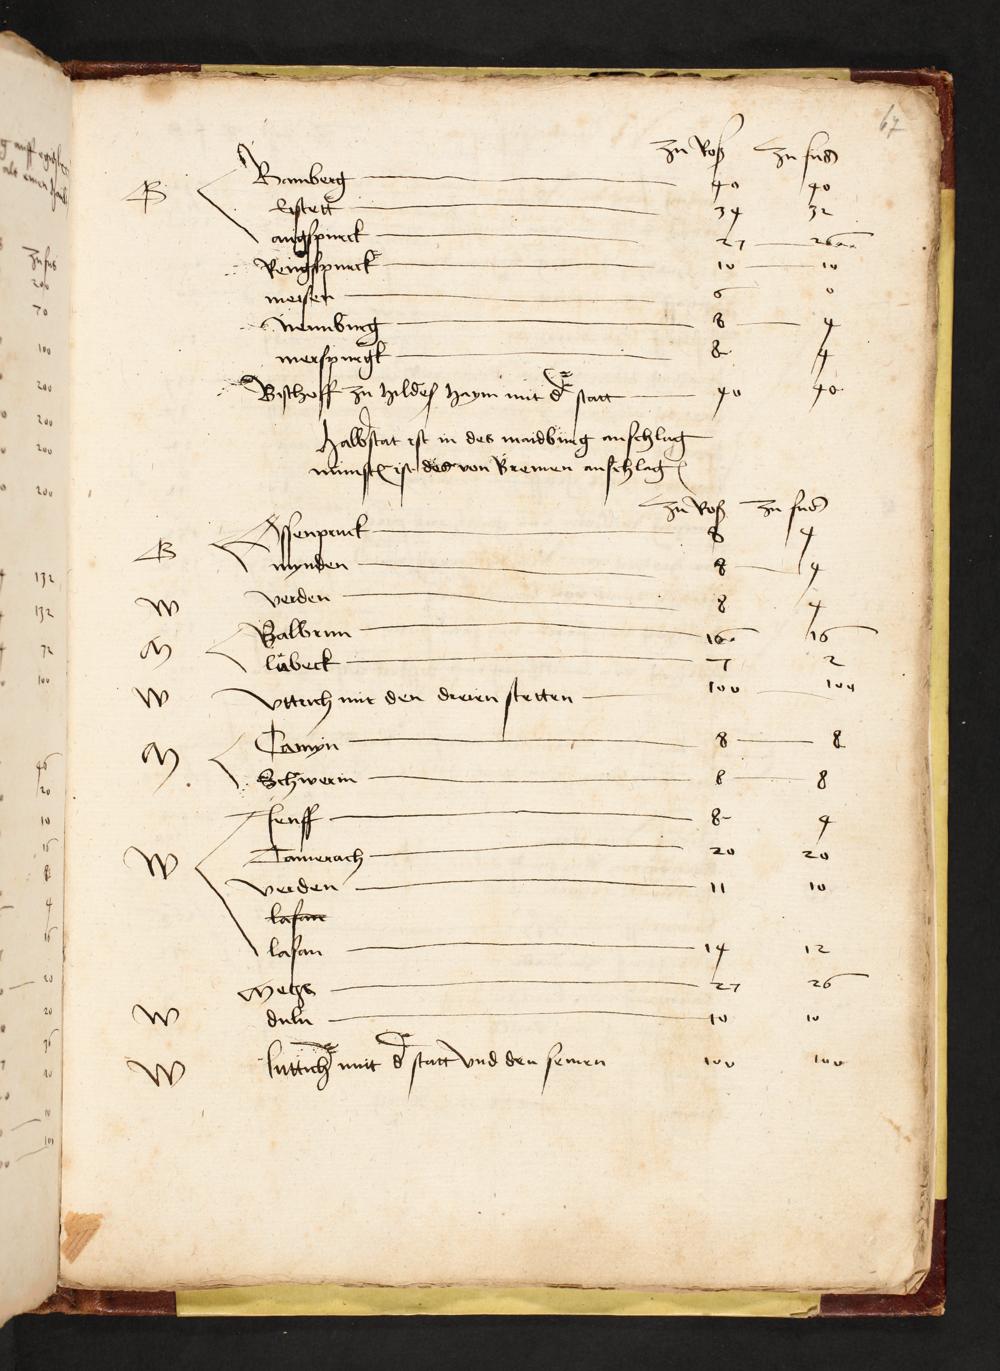 67
zu Roß zu fuß
B Bamberg 40 40
Eistett 34 32
augspurck 27 26
Rengspurck 10 10
meisen 6 0
Neunburg 8 4
merspurgk 8 4
Bischoff zu Hildeß haym mit d statt 40 40
halbstat ist in des maidburg anschlag
munster ist des von Bremen anschlag
zu Roß zu fuß
B Assenpruck 8 4
mynden 8 4
W verden 8 4
M Balbrun 16 16
lübeck 7 2
W vttrich mit den dreien stetten 100 100
M Camyn 8 8
Schwerin 8 8
W Jenff 8 4
Camerach 20 20
verden 11 10
lasan
lasan 14 12
Metz 27 26
W duln 10 10
W luttich mit d statt vnd den seinen 100 100
zu fuß
200
70
100
200
200
200
200
132
132
72
100